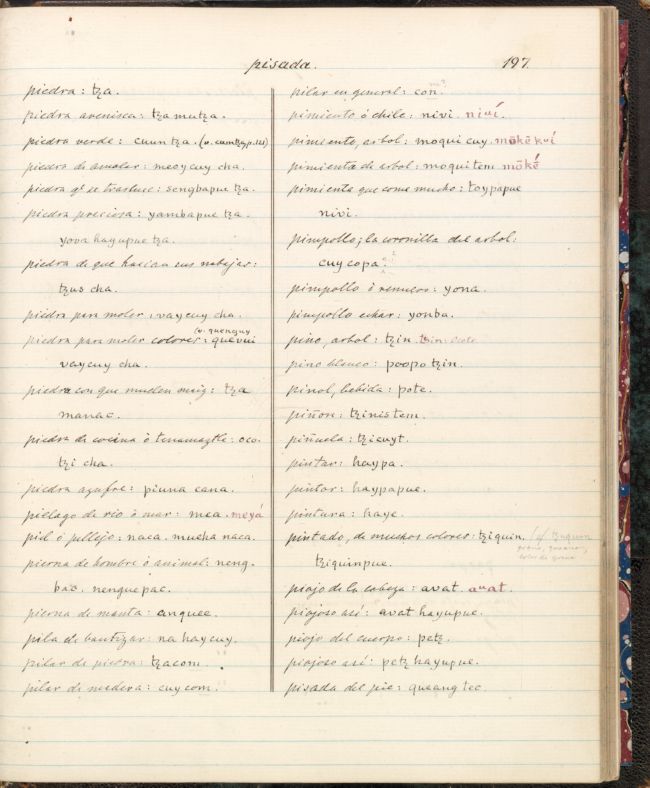 pisada.
197
piedra: tza.
piedra arenisca: tzamutza.
piedra verde: cuuntza. (v. cuuntza, p. 121)
piedra de amolar: meoycuy cha.
piedra qᵉ se trasluce: sengbapue tza.
piedra preciosa: yambapue tza.
yova hayupue tza.
piedra de que hacian sus nabajas:
tzus cha.
piedra para moler: vaycuy cha.
(v. quenguy
piedra para moler colores: quevui
vaycuy cha.
piedra con que muelen maiz: tza
manac.
piedra de cocina ò tenamaztle: oco.
tzi cha.
piedra azufre: piuna cana.
pielago de rio ò mar: mea. meyá
piel ò pellejo: naca. mucha naca.
pierna de hombre ò animal: neng.
bac. nenguepac.
pierna de manta: anquec.
pila de bautizar: na haycuy.
pilar de piedra: tzacom.
pilar de madera: cuycom.
pilar en general: con. m?
pimiento ò chile: nivi. niví.
pimiento, arbol: moqui cuy. mōkē kuí
pimienta de arbol: moquitem mōkḗ
pimienta que come mucho: toypapue
nivi.
pimpollo; la coronilla del arbol:
cuycopa.
pimpollo ò renuevo: yona.
pimpollo echar: yonba.
pino, arbol: tzin. tzin. ocote.
pino blanco: poopo tzin.
pinol, bebida: pote.
piñon: tzinistem.
piñuela: tzicuyt.
pintar: haypa.
pintor: haypapue.
pintura: haye.
pintado, de muchos colores: tziquin.
grana, gusano,
color de grana
tziquinpue.
piojo de la cabeza: avat. awat.
piojoso asi: avat hayupue.
piojo del cuerpo: petz.
piojoso asi: petz hayupue.
pisada del pie: queang tec.